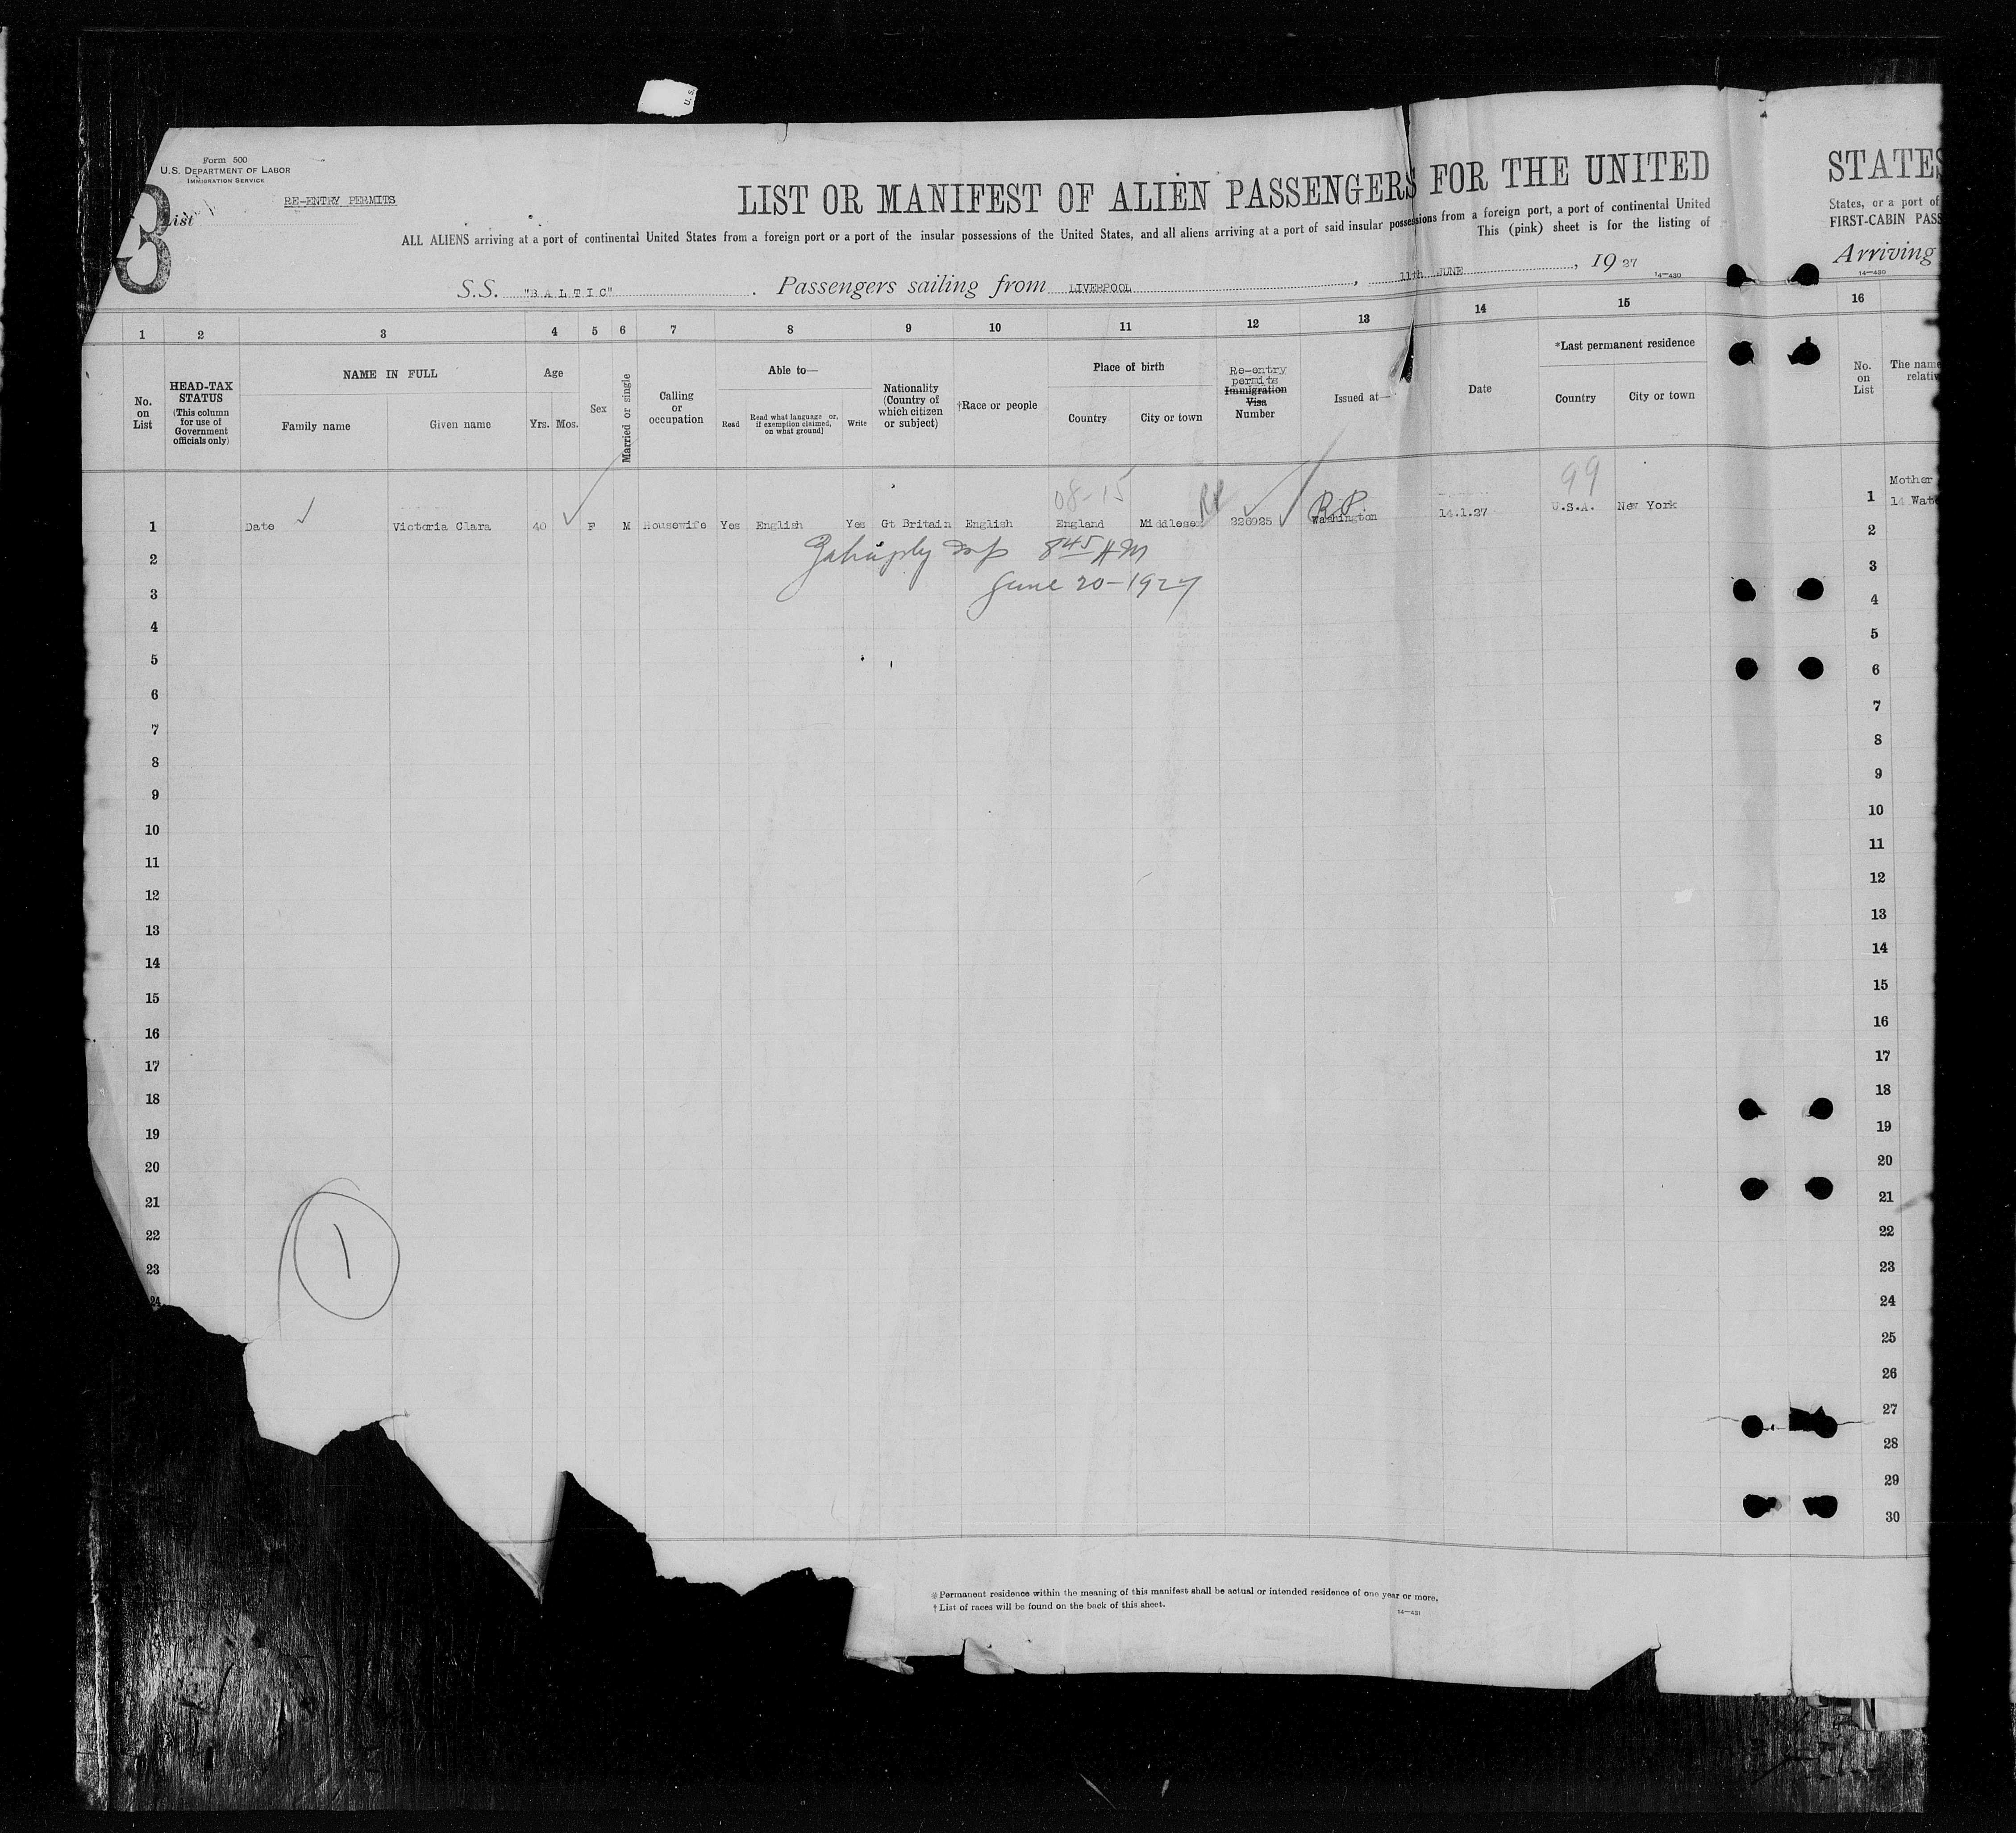 U.S.
Form 500
U.S. DEPARTMENT OF LABOR
IMMIGRATION SERVICE
3
List
RE-ENTRY PERMITS
LIST OR MANIFEST OF ALIEN PASSENGERS FOR THE UNITED
STATES
ALL ALIENS arriving at a port of continental United States from a foreign port or a port of the insular possessions of the United States, and all aliens arriving at a port of said insular possessions from a foreign port, a port of continental United
States, or a port of
This (pink) sheet is for the listing of
FIRST-CABIN PASS
S.S. "BALTIC" Passengers sailing from LIVERPOOL, 11th JUNE, 1927
Arriving
14—430
14—430
1 2 3 4 5 6 7 8 9 10 11 12 13 14 15 16
No. on List
HEAD-TAX STATUS (This column for use of Government officials only)
NAME IN FULL
Family name
Given name
Age
Yrs. Mos.
Sex
Married or single
Calling or occupation
Able to—
Read
Read what language or, if exemption claimed, on what ground]
Write
Nationality (Country of which citizen or subject)
†Race or people
Place of birth
Country
City or town
Re-entry permits
Immigration Visa
Number
Issued at—
Date
*Last permanent residence
Country
City or town
No. on List
The name
relativ
08-15
99
1 Date Victoria Clara 40 F M Housewife Yes English Yes Gt Britain English England Middlesex RP 226925 RP Washington 14.1.27 U.S.A. New York
1 Mother
14 Wat
8 45 AM
June 20-1927
2
3
4
5
6
7
8
9
10
11
12
13
14
15
16
17
18
19
20
21
22
23
24
1
2
3
4
5
6
7
8
9
10
11
12
13
14
15
16
17
18
19
20
21
22
23
24
25
26
27
28
29
30
*Permanent residence within the meaning of this manifest shall be actual or intended residence of one year or more.
†List of races will be found on the back of this sheet.
14—431